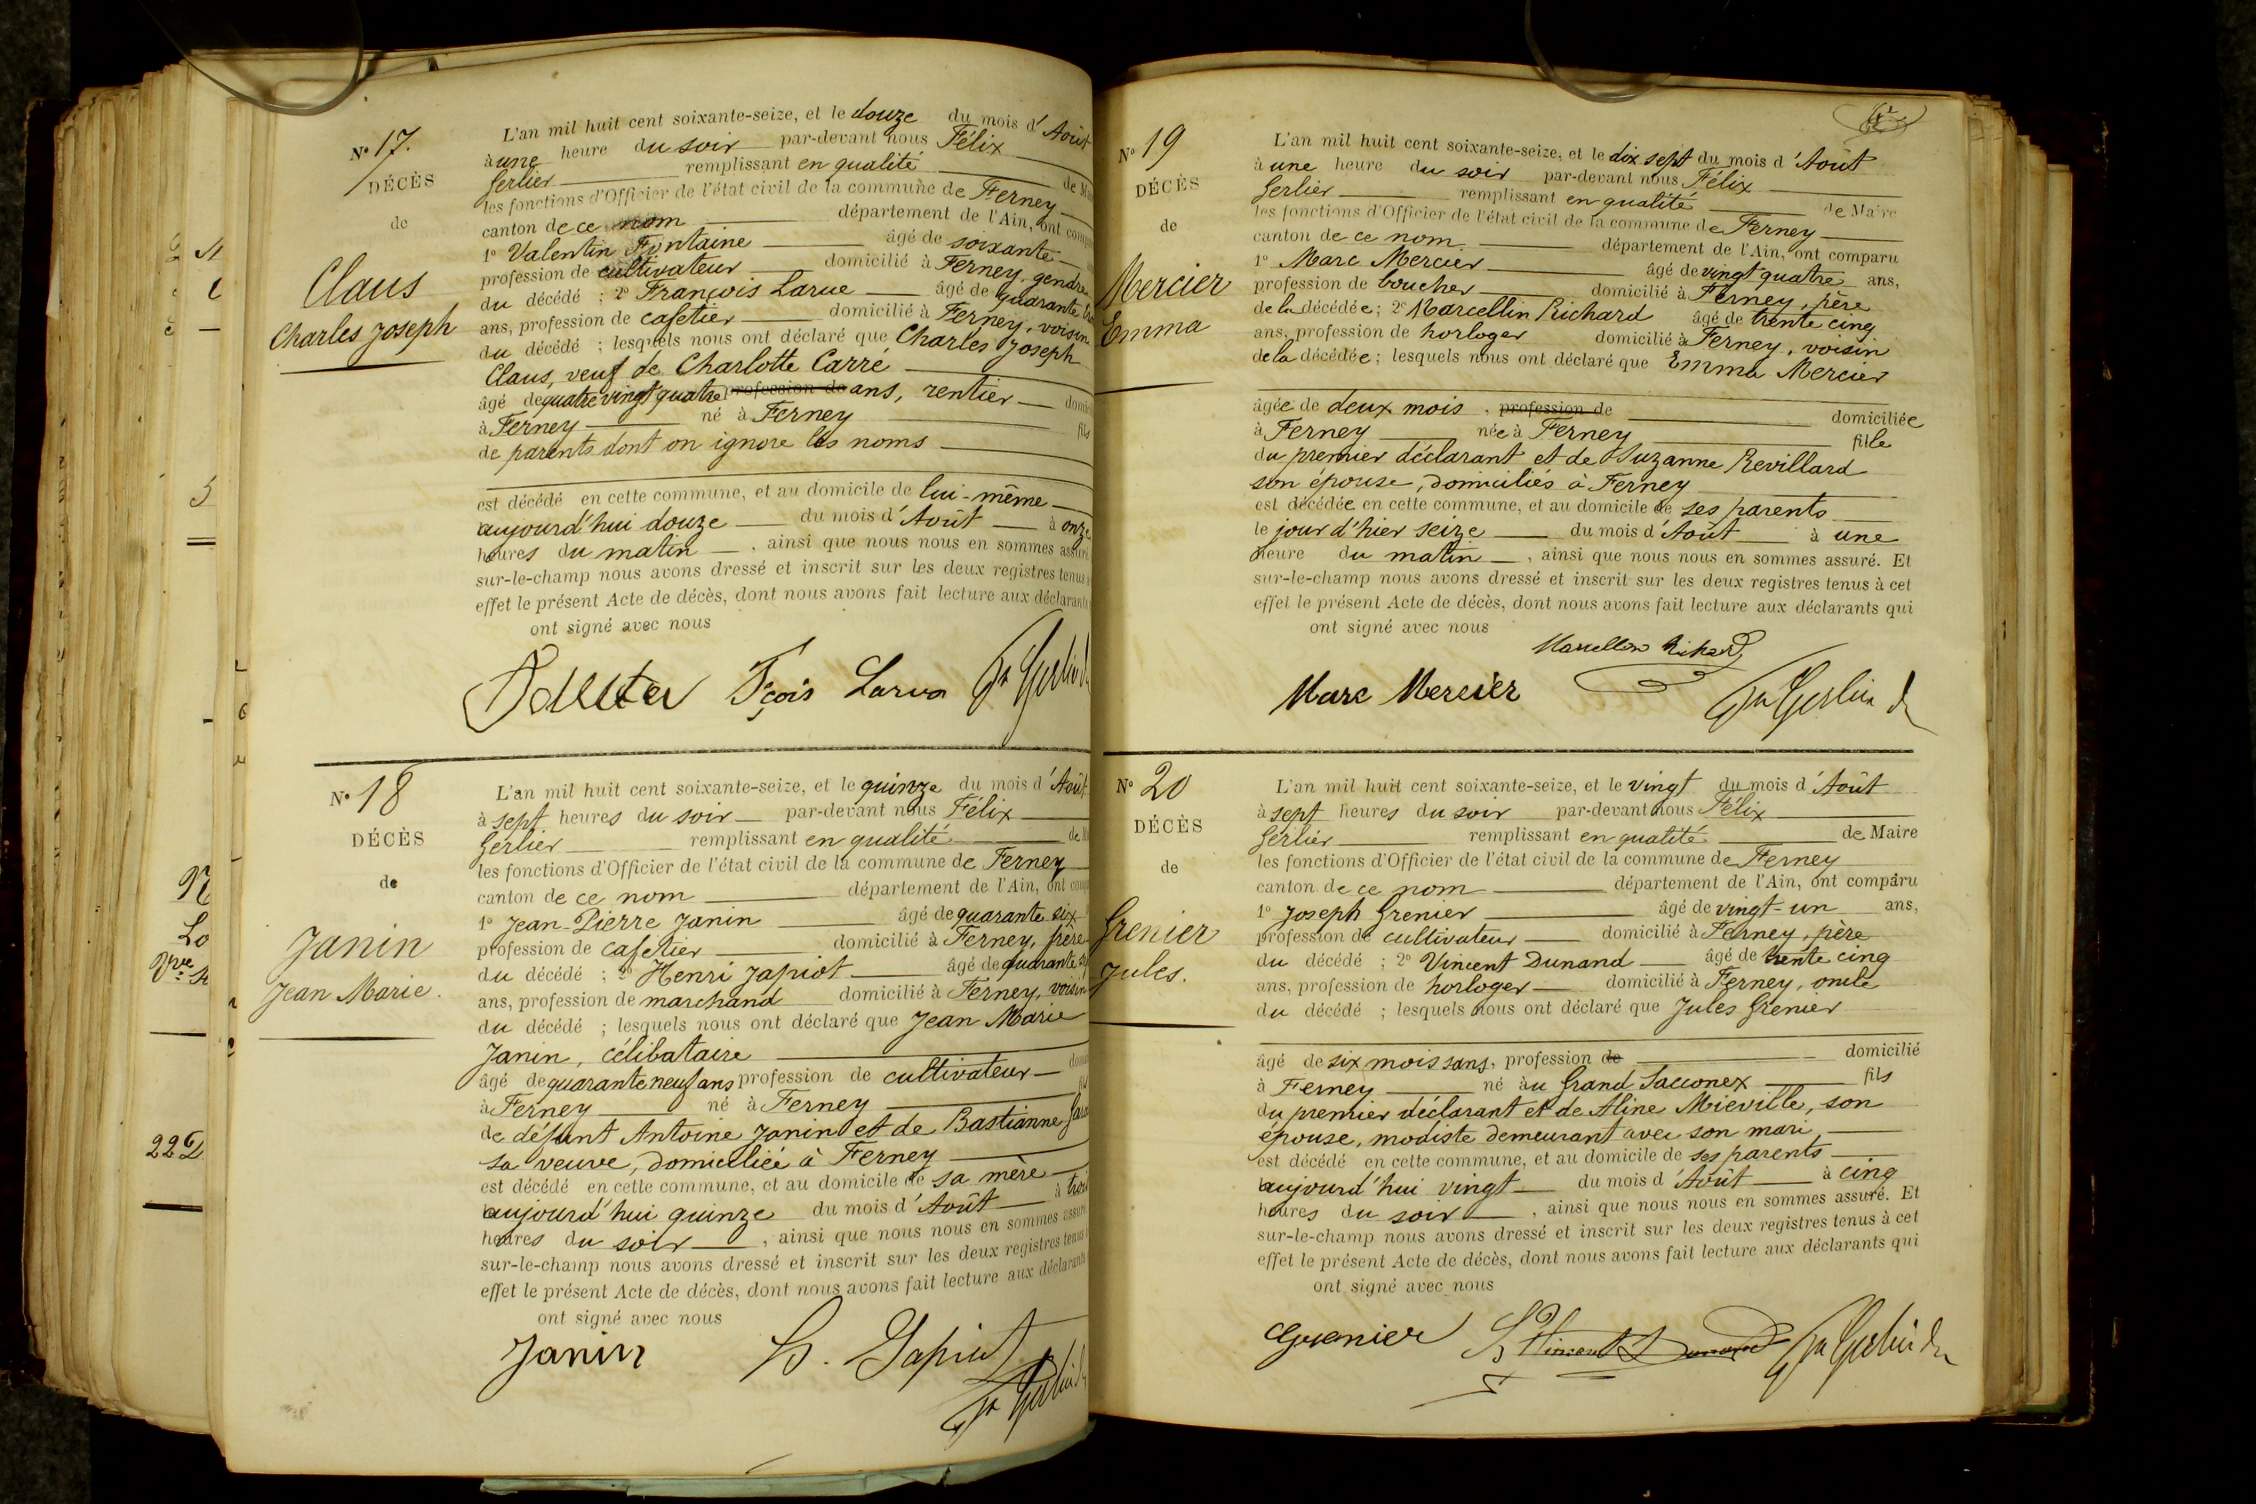 N° 17.
DÉCÈS
de
Claus
Charles Joseph
L'an mil huit cent soixante-seize, et le douze du mois d'Août
à une heure du soir par-devant nous Félix
Gerlier remplissant en qualité de
les fonctions d'Officier de l'état civil de la commune de Ferney
canton de ce nom département de l'Ain, ont
1° Valentin Fontaine âgé de soixante
profession de cultivateur domicilié à Ferney, gendre
du décédé ; 2° François Larue âgé de quarante
ans, profession de cafetier domicilié à Ferney, voisin
du décédé ; lesquels nous ont déclaré que Charles Joseph
Claus, veuf de Charlotte Carré
âgé de quatre vingt quatre profession de ans, rentier
à Ferney né à Ferney fils
de parents dont on ignore les noms
est décédé en cette commune, et au domicile de lui-même
aujourd'hui douze du mois d'Août à onze
heures du matin , ainsi que nous nous en sommes assuré
sur-le-champ nous avons dressé et inscrit sur les deux registres tenus à
effet le présent Acte de décès, dont nous avons fait lecture aux déclarants
ont signé avec nous
Fçois Larue
N° 18
DÉCÈS
de
Janin
Jean Marie.
L'an mil huit cent soixante-seize, et le quinze du mois d'Août
à sept heures du soir par-devant nous Félix
Gerlier remplissant en qualité de
les fonctions d'Officier de l'état civil de la commune de Ferney
canton de ce nom département de l'Ain, ont
1° Jean-Pierre Janin âgé de quarante six
profession de cafetier domicilié à Ferney, frère
du décédé ; 2° Henri Japiot âgé de quarante
ans, profession de marchand domicilié à Ferney, voisin
du décédé ; lesquels nous ont déclaré que Jean Marie
Janin, célibataire
âgé de quarante neuf ans profession de cultivateur
à Ferney né à Ferney fils
de défunt Antoine Janin et de Bastianne
sa veuve, domiciliée à Ferney
est décédé en cette commune, et au domicile de sa mère
aujourd'hui quinze du mois d'Août à trois
heures du soir , ainsi que nous nous en sommes assuré
sur-le-champ nous avons dressé et inscrit sur les deux registres tenus
effet le présent Acte de décès, dont nous avons fait lecture aux déclarants
ont signé avec nous
Janin H. Japiot
N° 19
DÉCÈS
de
Mercier
Emma
L'an mil huit cent soixante-seize, et le dix sept du mois d'Août
à une heure du soir par-devant nous Félix
Gerlier remplissant en qualité de Maire
les fonctions d'Officier de l'état civil de la commune de Ferney
canton de ce nom département de l'Ain, ont comparu
1° Marc Mercier âgé de vingt quatre ans,
profession de boucher domicilié à Ferney, père
de la décédée ; 2° Marcellin Richard âgé de trente cinq
ans, profession de horloger domicilié à Ferney, voisin
de la décédée ; lesquels nous ont déclaré que Emma Mercier
âgée de deux mois , profession de domiciliée
à Ferney née à Ferney fille
du premier déclarant et de Suzanne Revillard
son épouse, domiciliés à Ferney
est décédée en cette commune, et au domicile de ses parents
le jour d'hier seize du mois d'Août à une
heure du matin , ainsi que nous nous en sommes assuré. Et
sur-le-champ nous avons dressé et inscrit sur les deux registres tenus à cet
effet le présent Acte de décès, dont nous avons fait lecture aux déclarants qui
ont signé avec nous
Marcellin Richard
Marc Mercier
N° 20
DÉCÈS
de
Grenier
Jules.
L'an mil huit cent soixante-seize, et le vingt du mois d'Août
à sept heures du soir par-devant nous Félix
Gerlier remplissant en qualité de Maire
les fonctions d'Officier de l'état civil de la commune de Ferney
canton de ce nom département de l'Ain, ont comparu
1° Joseph Grenier âgé de vingt-un ans,
profession de cultivateur domicilié à Ferney, père
du décédé ; 2° Vincent Dunand âgé de trente cinq
ans, profession de horloger domicilié à Ferney, oncle
du décédé ; lesquels nous ont déclaré que Jules Grenier
âgé de six mois sans, profession de domicilié
à Ferney né au Grand Sacconex fils
du premier déclarant et de Aline Mieville, son
épouse, modiste demeurant avec son mari,
est décédé en cette commune, et au domicile de ses parents
aujourd'hui vingt du mois d'Août à cinq
heures du soir , ainsi que nous nous en sommes assuré. Et
sur-le-champ nous avons dressé et inscrit sur les deux registres tenus à cet
effet le présent Acte de décès, dont nous avons fait lecture aux déclarants qui
ont signé avec nous
Grenier